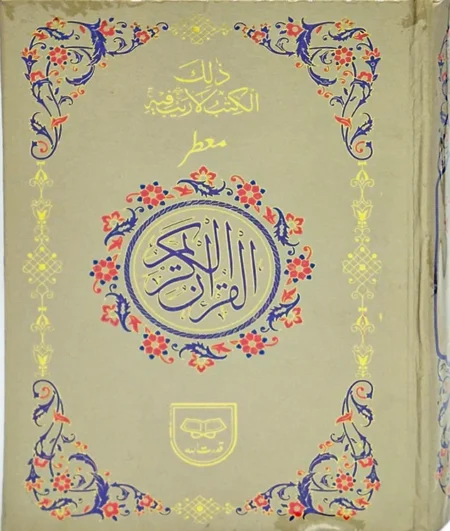 ذٰلِكَ
الكتب لا ريب فيه
معطر
القرآن الكريم